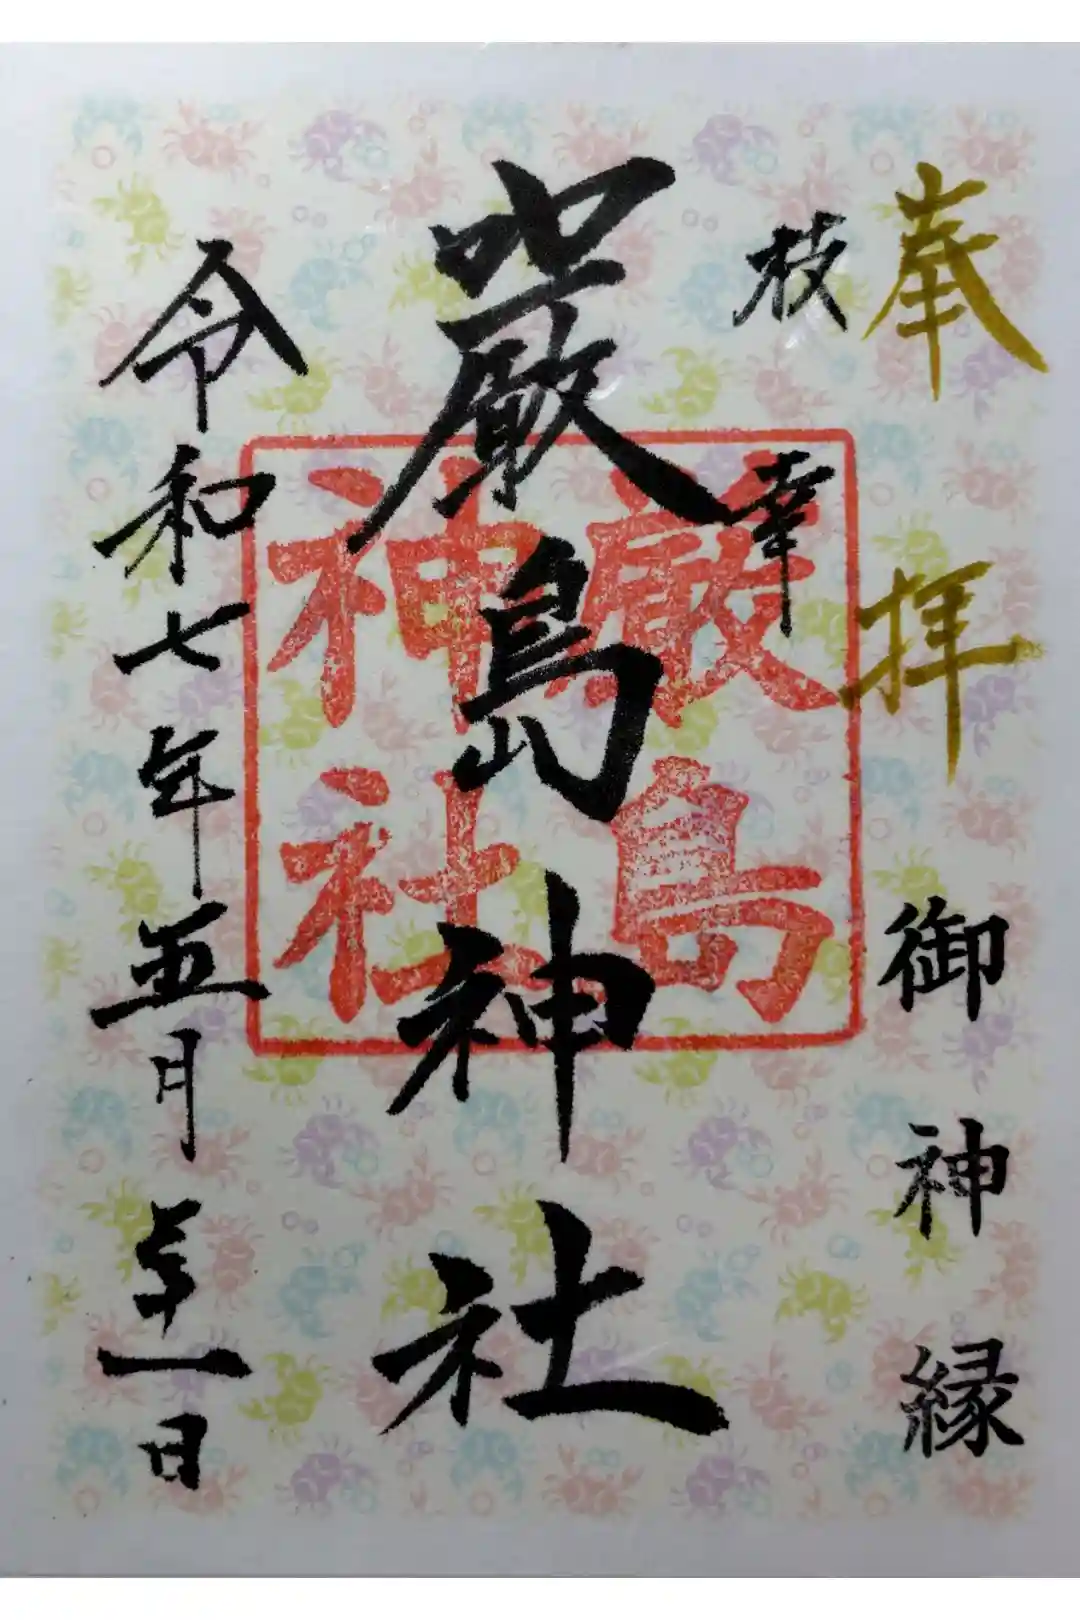 奉拝
御神縁
枝幸
嚴島神社
厳島
神社
令和七年五月
一日